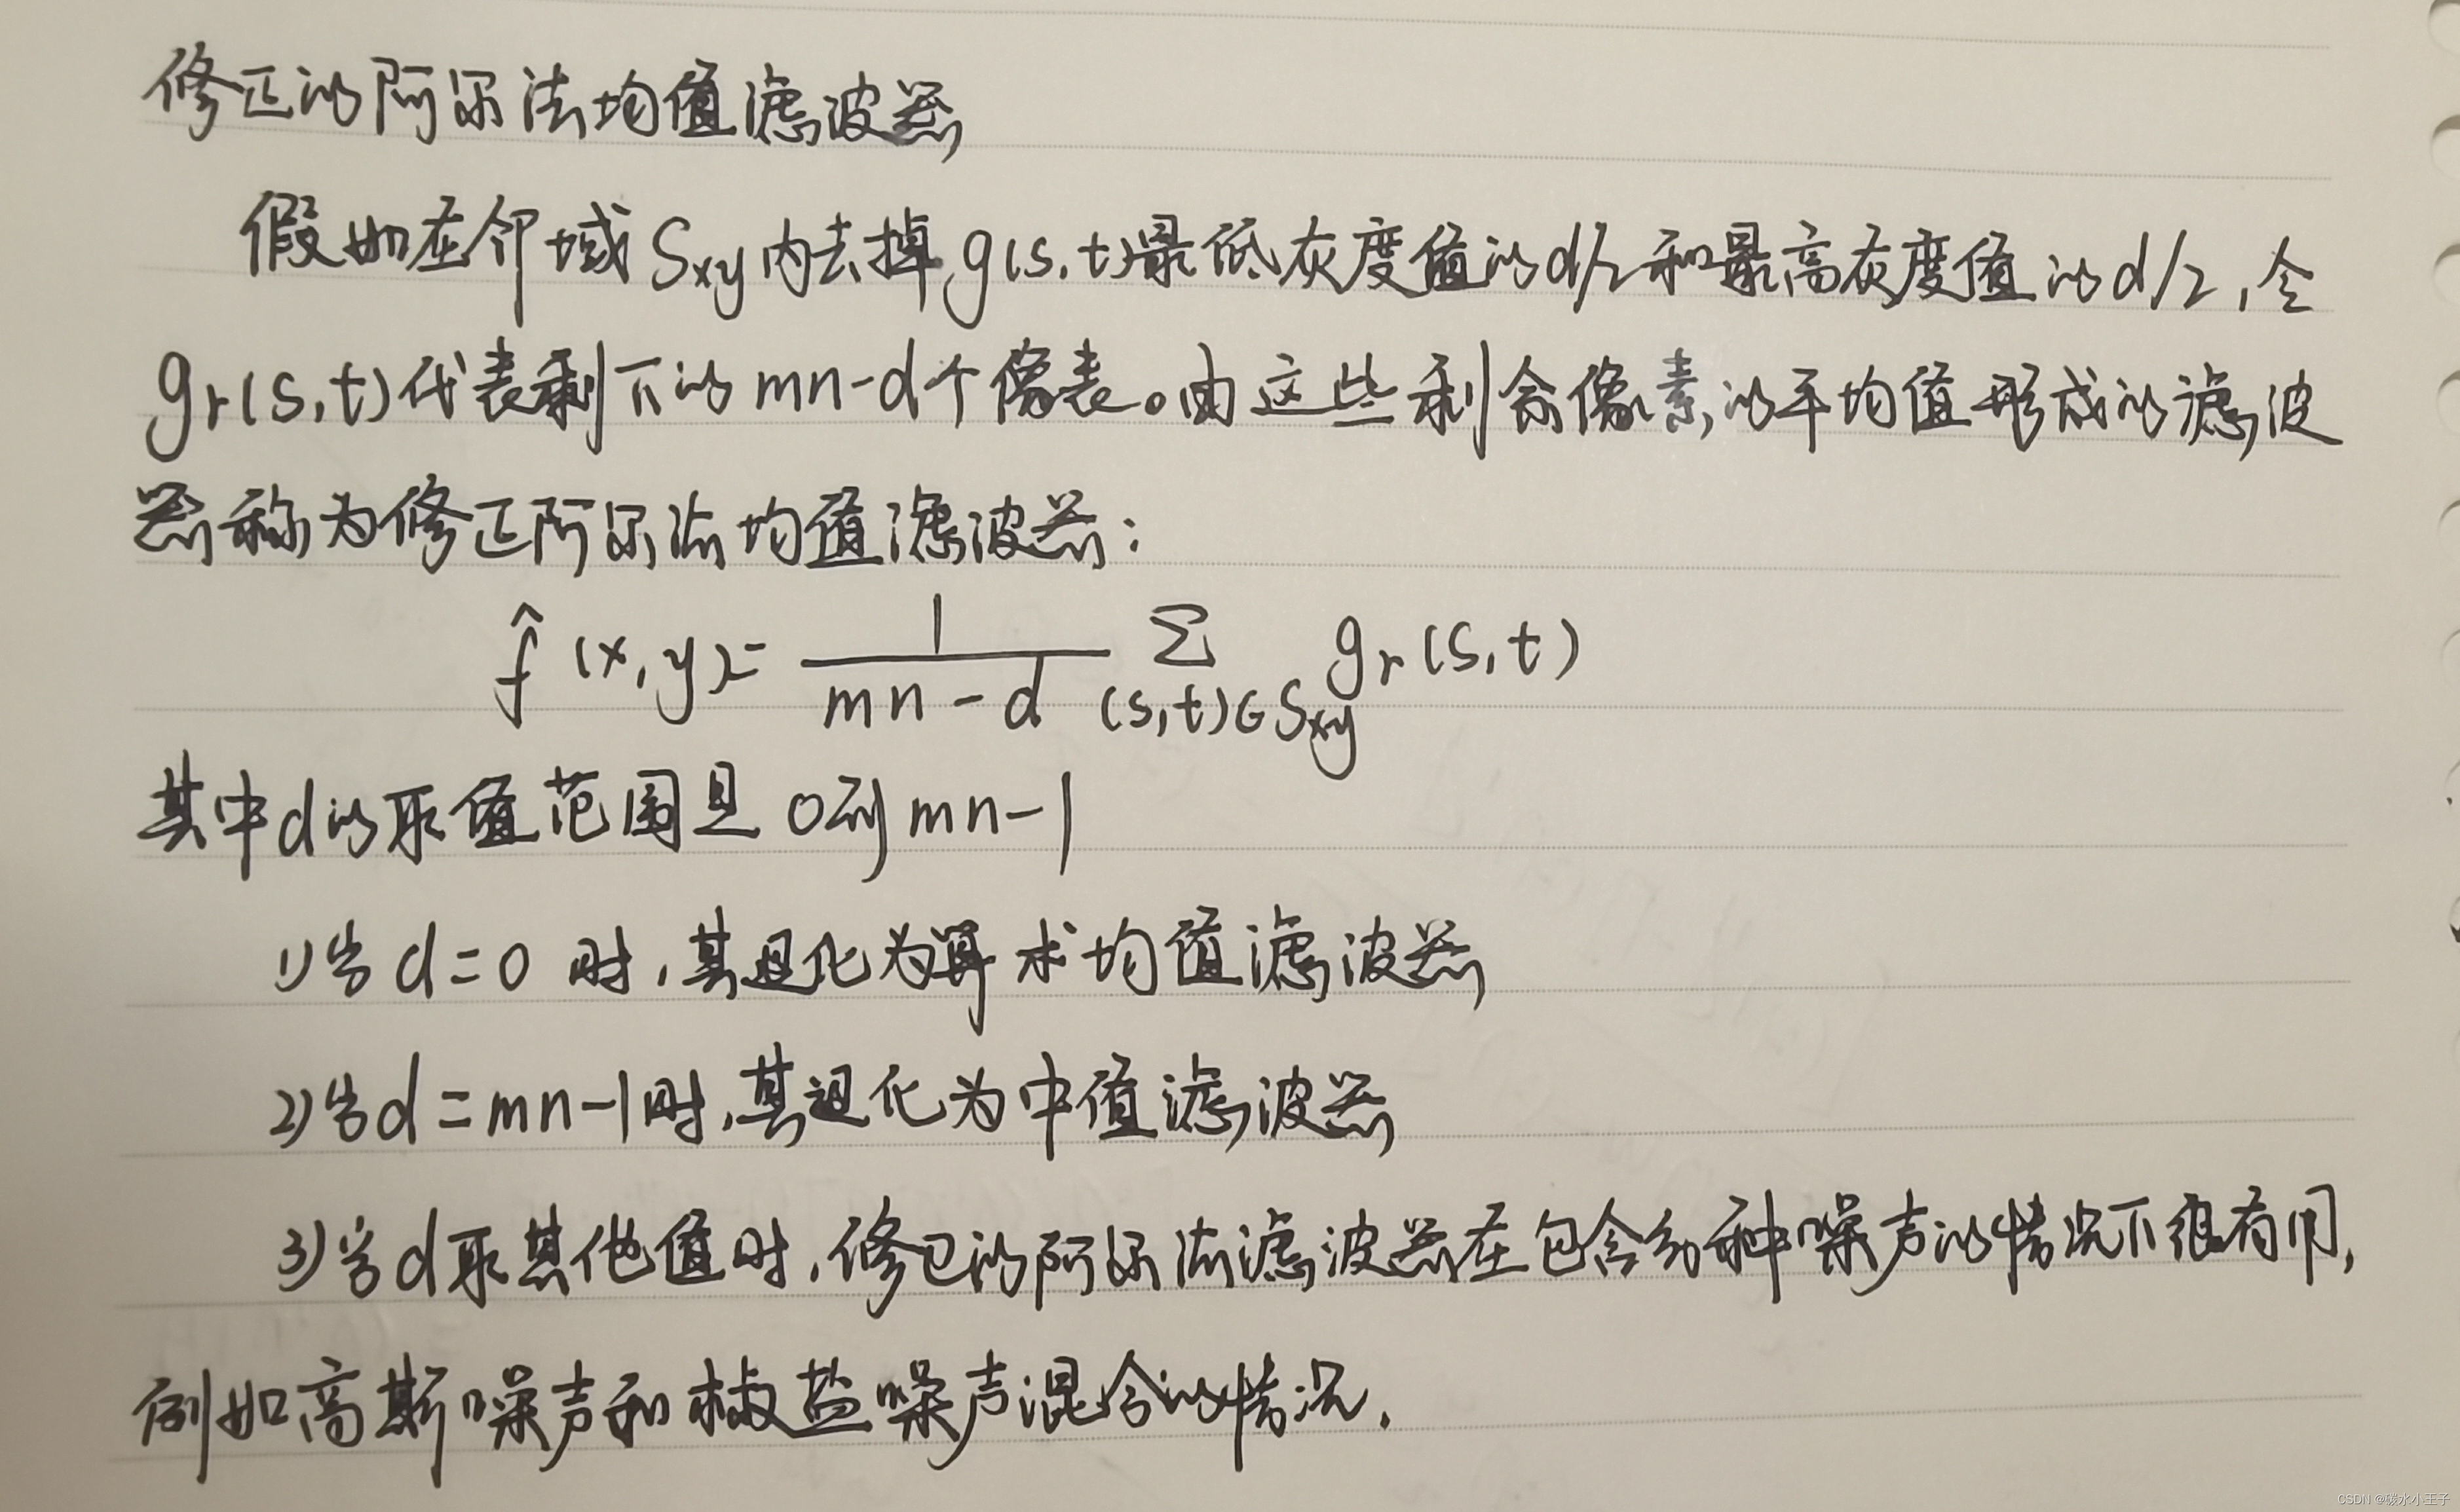 修正的阿尔法均值滤波器
假如在邻域 Sxy 内去掉 g(s,t)最低灰度值的d/2和最高灰度值的d/2,令
gr(s,t)代表剩下的 mn-d个像表。由这些剩余像素的平均值形成的滤波
器称为修正阿尔法均值滤波器:
f̂(x,y)= 1/(mn-d) Σ(s,t)∈Sxy gr(s,t)
其中d的取值范围是 0到mn-1
1)当 d=0 时,其退化为算术均值滤波器
2)当d=mn-1时,其退化为中值滤波器
3)当d取其他值时,修正的阿尔法滤波器在包含多种噪声的情况下很有用,
例如高斯噪声和椒盐噪声混合的情况.
CSDN @碳水小王子